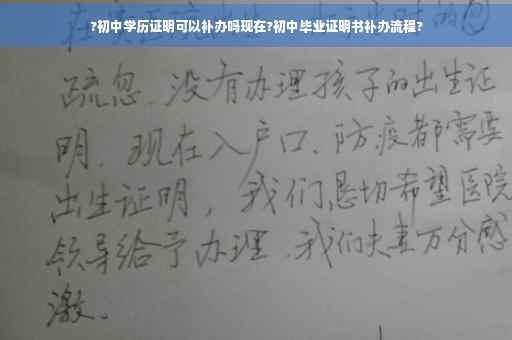 ?初中学历证明可以补办吗现在?初中毕业证明书补办流程?
疏忽、没有办理孩子的出生证
明、现在入户口、防疫都需要
出生证明，我们恳切希望医院
领导给予办理、我们夫妻万分感
激。